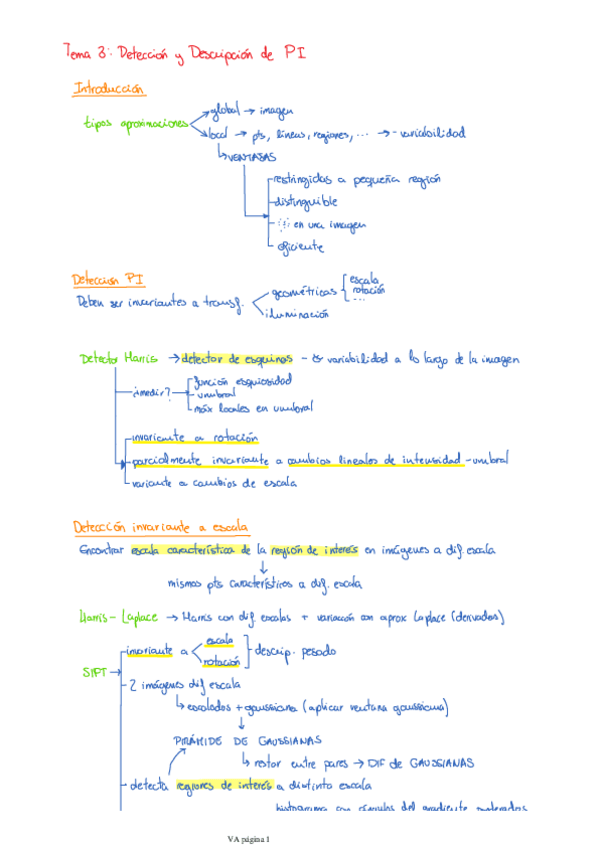 Tema 3: Detección y Descripción de PI
Introducción
tipos aproximaciones
global → imagen
local → pts, líneas, regiones, ... → - variabilidad
↳ VENTAJAS
restringidas a pequeña región
distinguible
en una imagen
eficiente
Detección PI
Deben ser invariantes a transf.
geométricas
escala
rotación
...
iluminación
Detector Harris → detector de esquinas - variabilidad a lo largo de la imagen
¿medir?
función esquinosidad
- umbral
máx locales en umbral
invariante a rotación
parcialmente invariante a cambios lineales de intensidad - umbral
variante a cambios de escala
Detección invariante a escala
Encontrar escala característica de la región de interés en imágenes a dif. escala
↓
mismos pts característicos a dif. escala
Harris - Laplace → Harris con dif. escalas + variación con aprox Laplace (derivadas)
SIFT →
invariante a
escala
rotación
descrip. pesado
- 2 imágenes dif escala
↳ escalados + gaussiana (aplicar ventana gaussiana)
↓
PIRÁMIDE DE GAUSSIANAS
↳ restar entre pares → DIF de GAUSSIANAS
- detecta regiones de interés a distinta escala
histograma con del gradiente
VA página 1